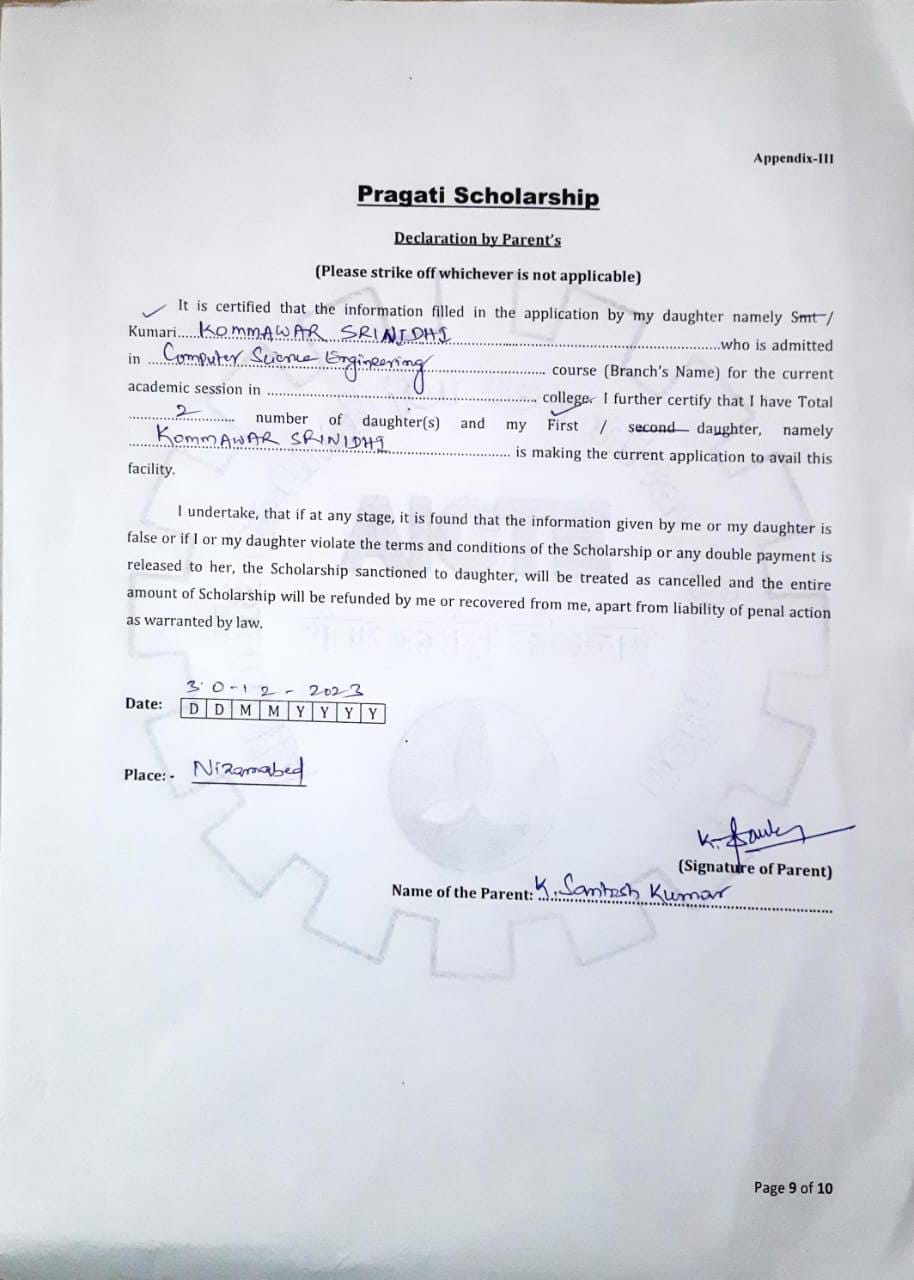 Appendix-III
Pragati Scholarship
Declaration by Parent's
(Please strike off whichever is not applicable)
It is certified that the information filled in the application by my daughter namely Smt /
Kumari.....KOMMAWAR SRINIDHI.....who is admitted
in ...Computer Science Engineering..... course (Branch's Name) for the current
academic session in ..... college. I further certify that I have Total
.....2..... number of daughter(s) and my First / second daughter, namely
.....KOMMAWAR SRINIDHI..... is making the current application to avail this
facility.
I undertake, that if at any stage, it is found that the information given by me or my daughter is
false or if I or my daughter violate the terms and conditions of the Scholarship or any double payment is
released to her, the Scholarship sanctioned to daughter, will be treated as cancelled and the entire
amount of Scholarship will be refunded by me or recovered from me, apart from liability of penal action
as warranted by law.
30-12-2023
Date: D D M M Y Y Y Y
Place: - Nizamabad
(Signature of Parent)
Name of the Parent: K. Santosh Kumar
Page 9 of 10